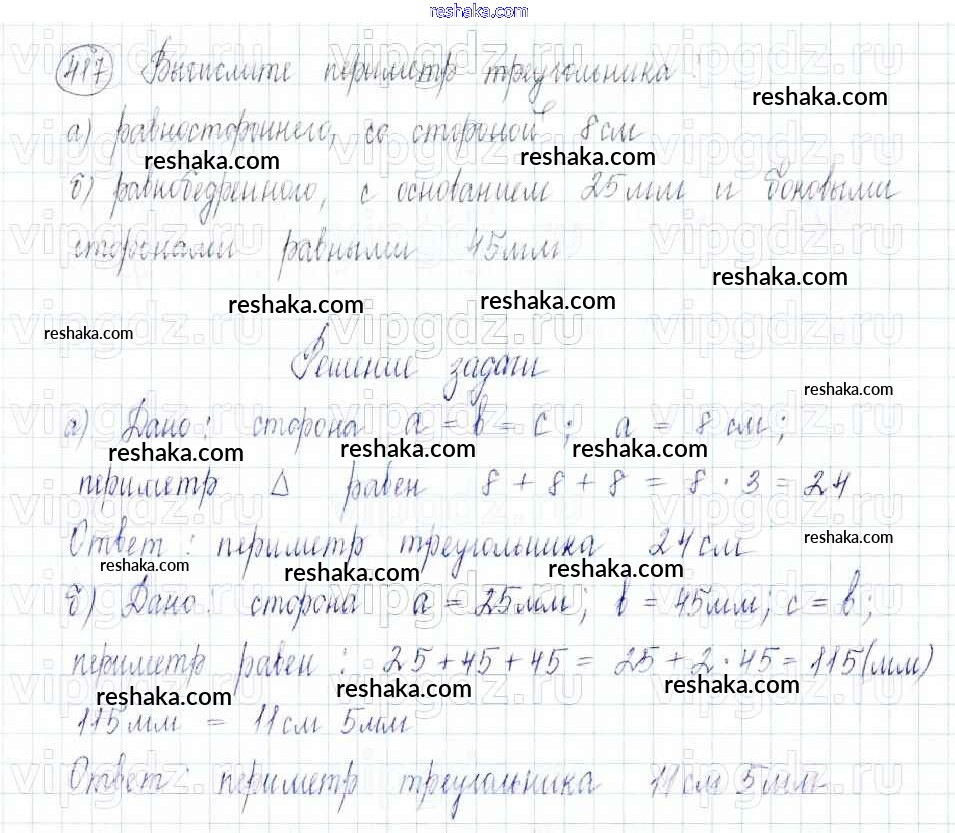 reshaka.com
417 Вычислите периметр треугольника:
reshaka.com
а) равностороннего, со стороной 8 см
reshaka.com reshaka.com
б) равнобедренного, с основанием 25 мм и боковыми
сторонами равными 45 мм.
reshaka.com
reshaka.com reshaka.com
reshaka.com
Решение задачи
reshaka.com
а) Дано: сторона a = b = c; a = 8 см;
reshaka.com reshaka.com reshaka.com
периметр Δ равен 8 + 8 + 8 = 8 · 3 = 24
reshaka.com
Ответ: периметр треугольника 24 см
reshaka.com reshaka.com reshaka.com
б) Дано: сторона a = 25 мм; b = 45 мм; c = b;
reshaka.com
периметр равен: 25 + 45 + 45 = 25 + 2 · 45 = 115 (мм)
reshaka.com reshaka.com reshaka.com
115 мм = 11 см 5 мм
Ответ: периметр треугольника 11 см 5 мм
vipgdz.ru